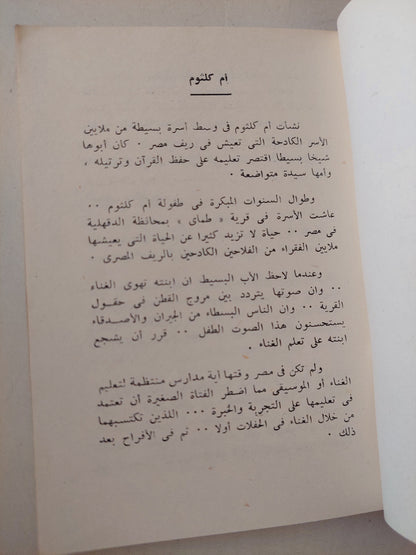 أم كلثوم
نشأت أم كلثوم فى وسط أسرة بسيطة من ملايين
الأسر الكادحة التى تعيش فى ريف مصر . كان أبوها
شيخا بسيطا اقتصر تعليمه على حفظ القرآن وترتيله ،
وأمها سيدة متواضعة .
وطوال السنوات المبكرة فى طفولة أم كلثوم ..
عاشت الأسرة فى قرية « طماى » بمحافظة الدقهلية
فى مصر .. حياة لا تزيد كثيرا عن الحياة التى يعيشها
ملايين الفقراء من الفلاحين الكادحين بالريف المصرى .
وعندما لاحظ الأب البسيط ان ابنته تهوى الغناء
.. وان صوتها يتردد بين مروج القطن فى حقول
القرية .. وان الناس البسطاء من الجيران والأصدقاء
يستحسنون هذا الصوت الطفل .. قرر أن يشجع
ابنته على تعلم الغناء .
ولم تكن فى مصر وقتها أية مدارس منتظمة لتعليم
الغناء أو الموسيقى مما اضطر الفتاة الصغيرة أن تعتمد
فى تعليمها على التجربة والخبرة ... اللذين تكتسبهما
من خلال الغناء فى الحفلات أولا .. ثم فى الأفراح بعد
ذلك .